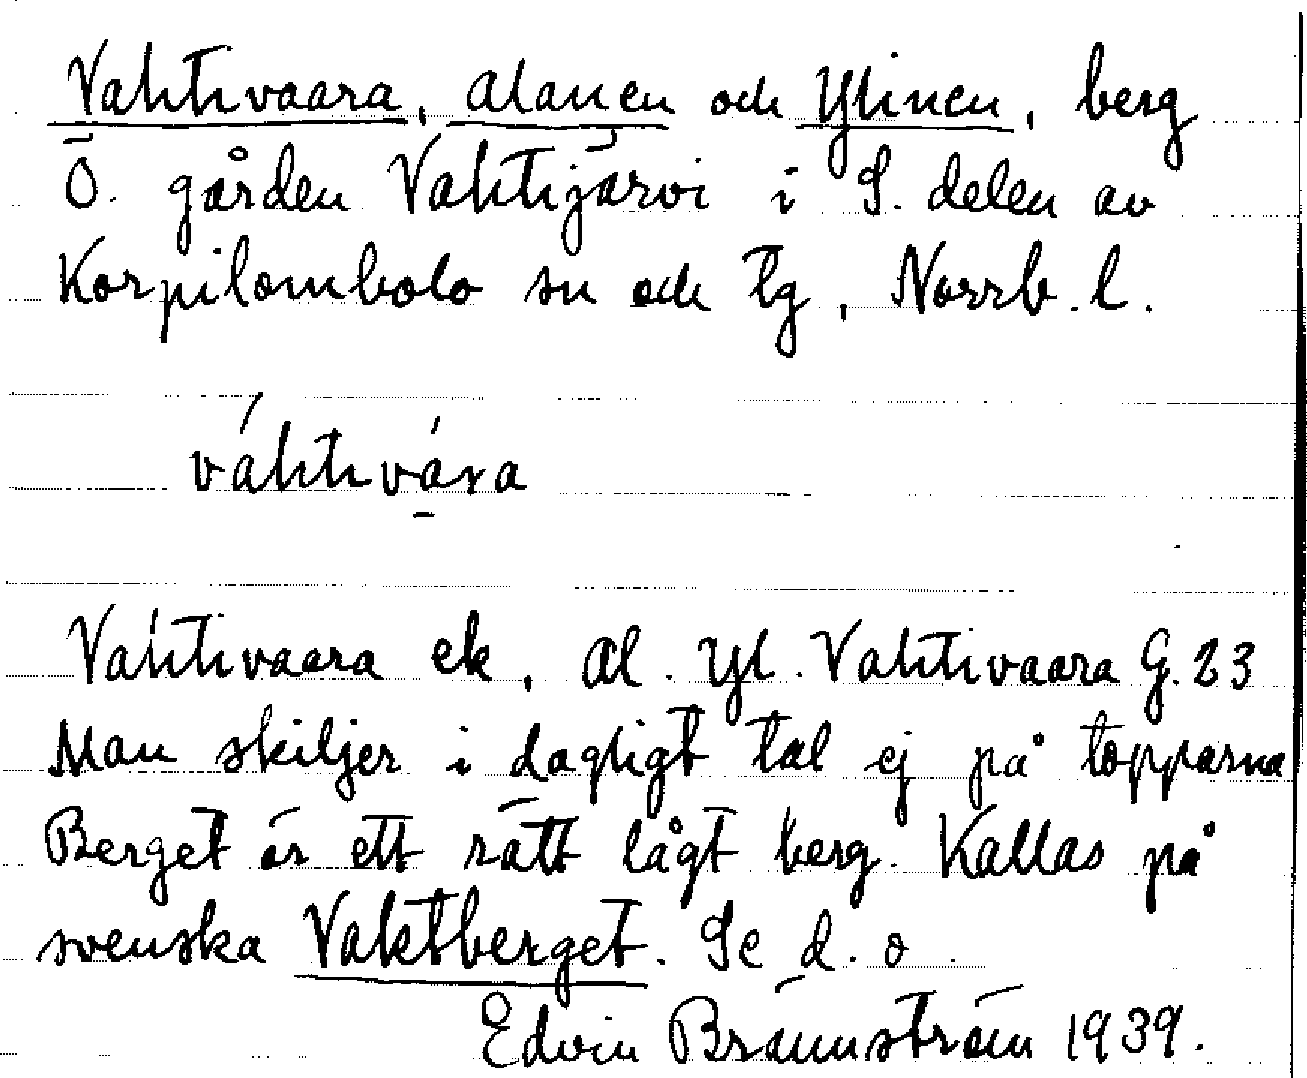 Vahtivaara, Alanen och Ylinen, berg
Ö. gården Vahtijärvi i S. delen av
Korpilombolo sn och tg, Norrb. l.
váhtivára
Vahtivaara ek, Al. Yl. Vahtivaara G. 23
Man skiljer i dagligt tal ej på topparna
Berget är ett rätt lågt berg. Kallas på
svenska Vaktberget. Se d. o.
Edvin Brännström 1939.